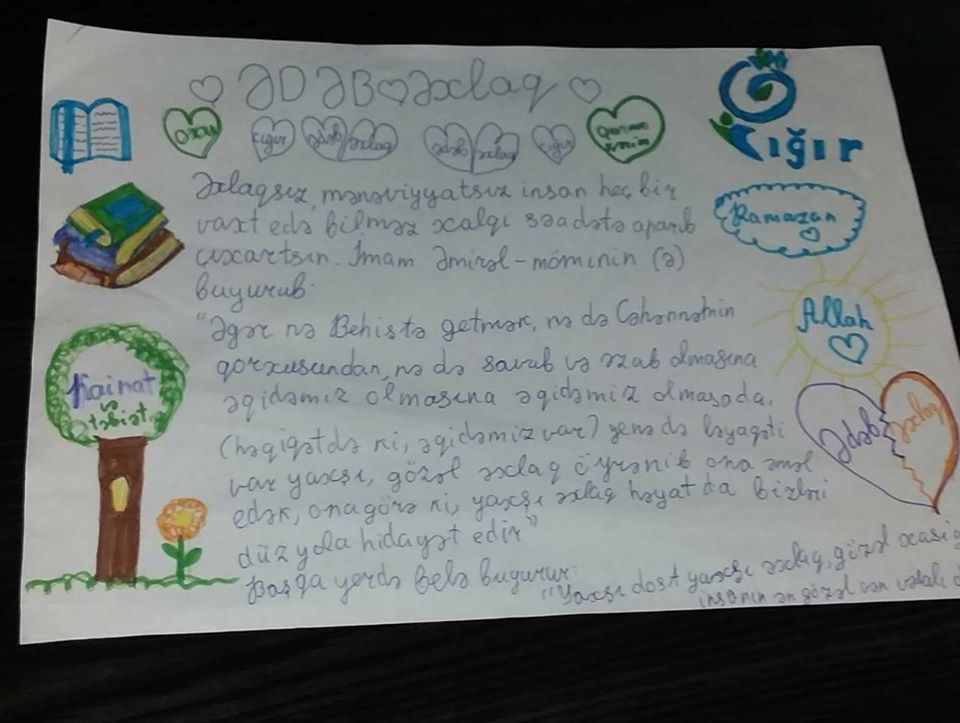 ƏDƏB Əxlaq
Oxu
Çığır
Ədəb əxlaq
Ədəb əxlaq
Çığır
Quran
Çığır
Əxlaqsız, mənəviyyatsız insan heç bir
vaxt edə bilməz xalqı səadətə aparıb
çıxartsın. İmam Əmirəl-möminin (ə)
buyurub.
Ramazan
"Əgər nə Behiştə getmək, nə də Cəhənnəmin
qorxusundan, nə də savab və əzab olmasına
əqidəmiz olmasına əqidəmiz olmasada,
(həqiqətdə ki, əqidəmiz var) yenə də ləyaqəti
var yaxşı, gözəl əxlaq öyrənib ona əməl
edək, ona görə ki, yaxşı əxlaq həyatda bizləri
düz yola hidayət edir"
Başqa yerdə belə buyurur:
"Yaxşı dost yaxşı əxlaq, gözəl
insanın ən gözəl
Allah
Kainat
və
təbiət
Ədəb əxlaq